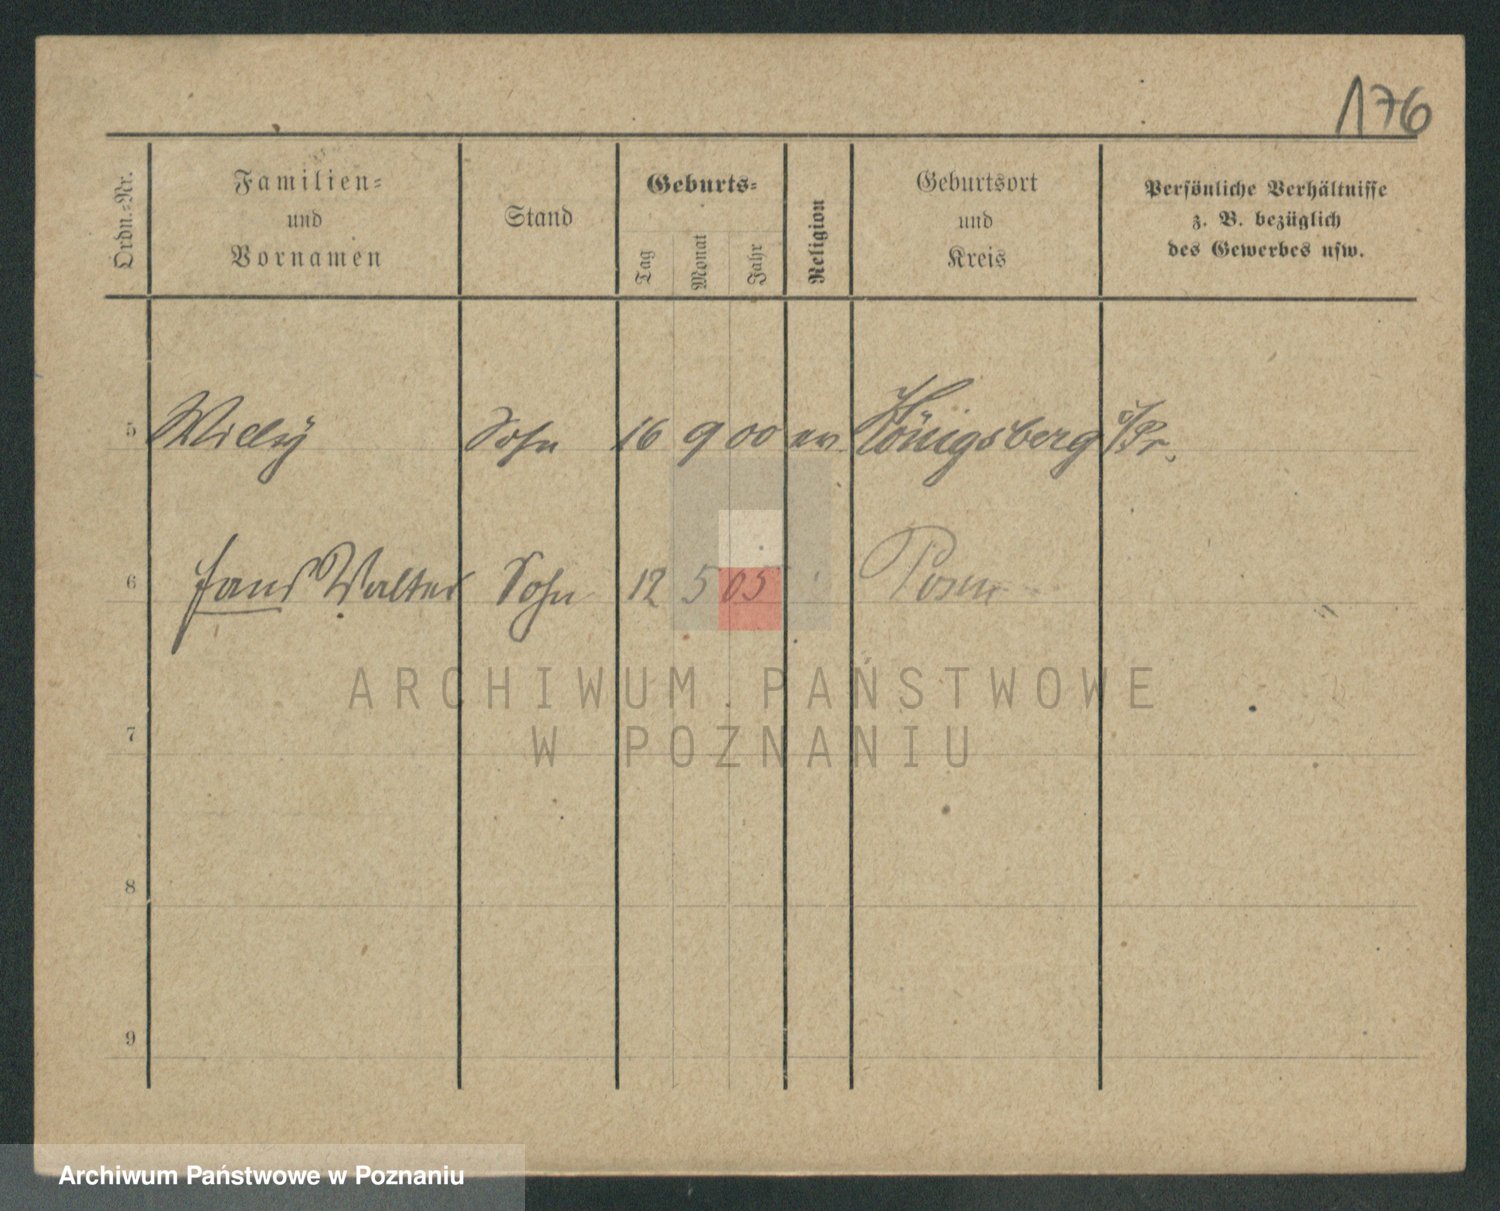 176
Ordn.-Nr. Familien- und Vornamen Stand Geburts- Tag Monat Jahr Religion Geburtsort und Kreis Persönliche Verhältnisse z. B. bezüglich des Gewerbes usw.
5 Willy Sohn 16 9 00 ev Königsberg i/Pr.
6 Hans Walter Sohn 12 5 05 Posen
ARCHIWUM PAŃSTWOWE
W POZNANIU
7
8
9
Archiwum Państwowe w Poznaniu